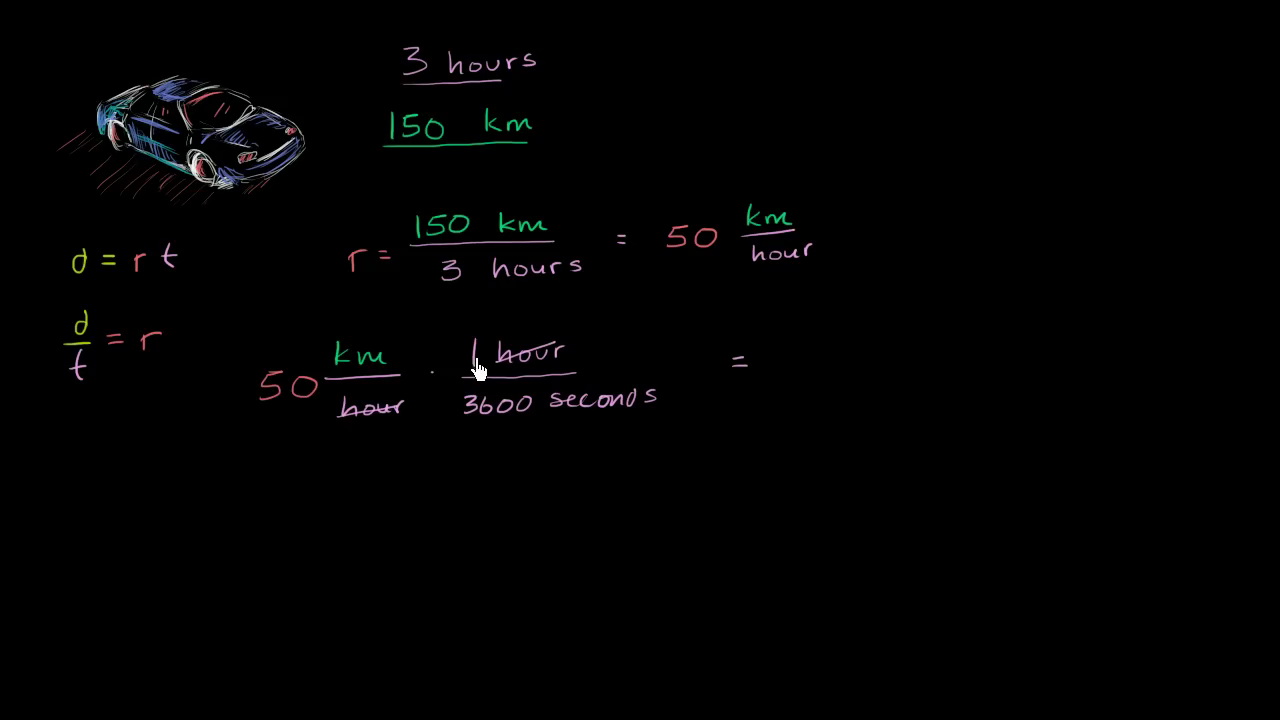 3 hours
150 km
d = r t
r = 150 km / 3 hours = 50 km / hour
d / t = r
50 km / hour · 1 hour / 3600 seconds =